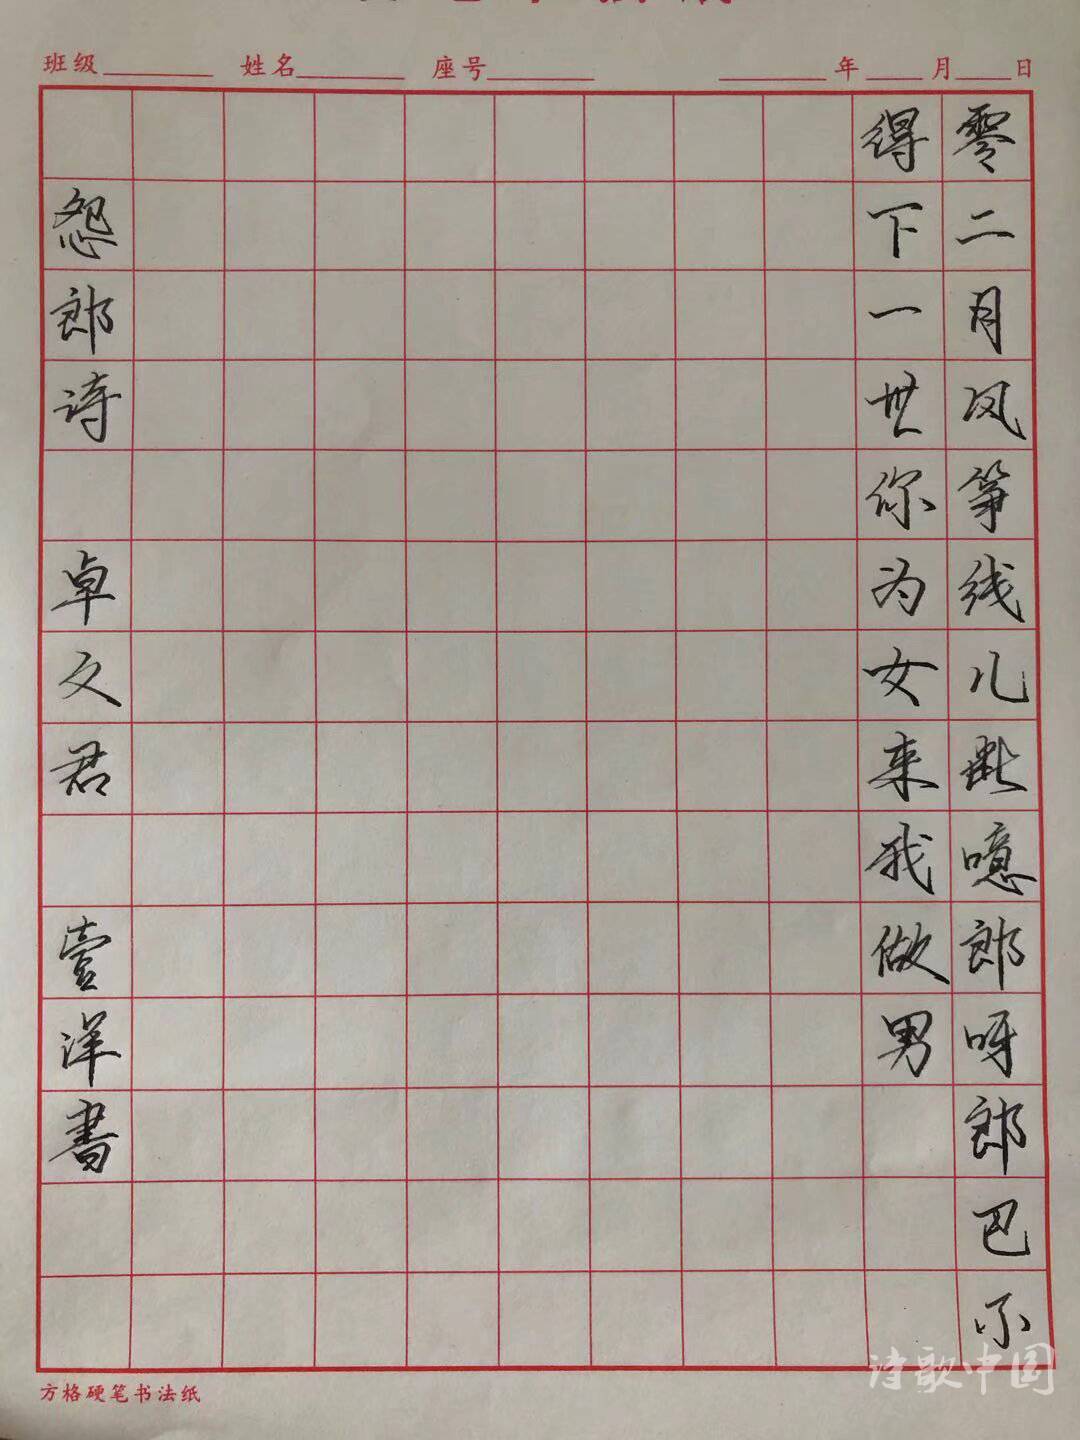 班级 姓名 座号 年 月 日
零二月风筝线儿断噫郎呀郎巴不
得下一世你为女来我做男
怨郎诗 卓文君 壹洋書
方格硬笔书法纸
诗歌中国